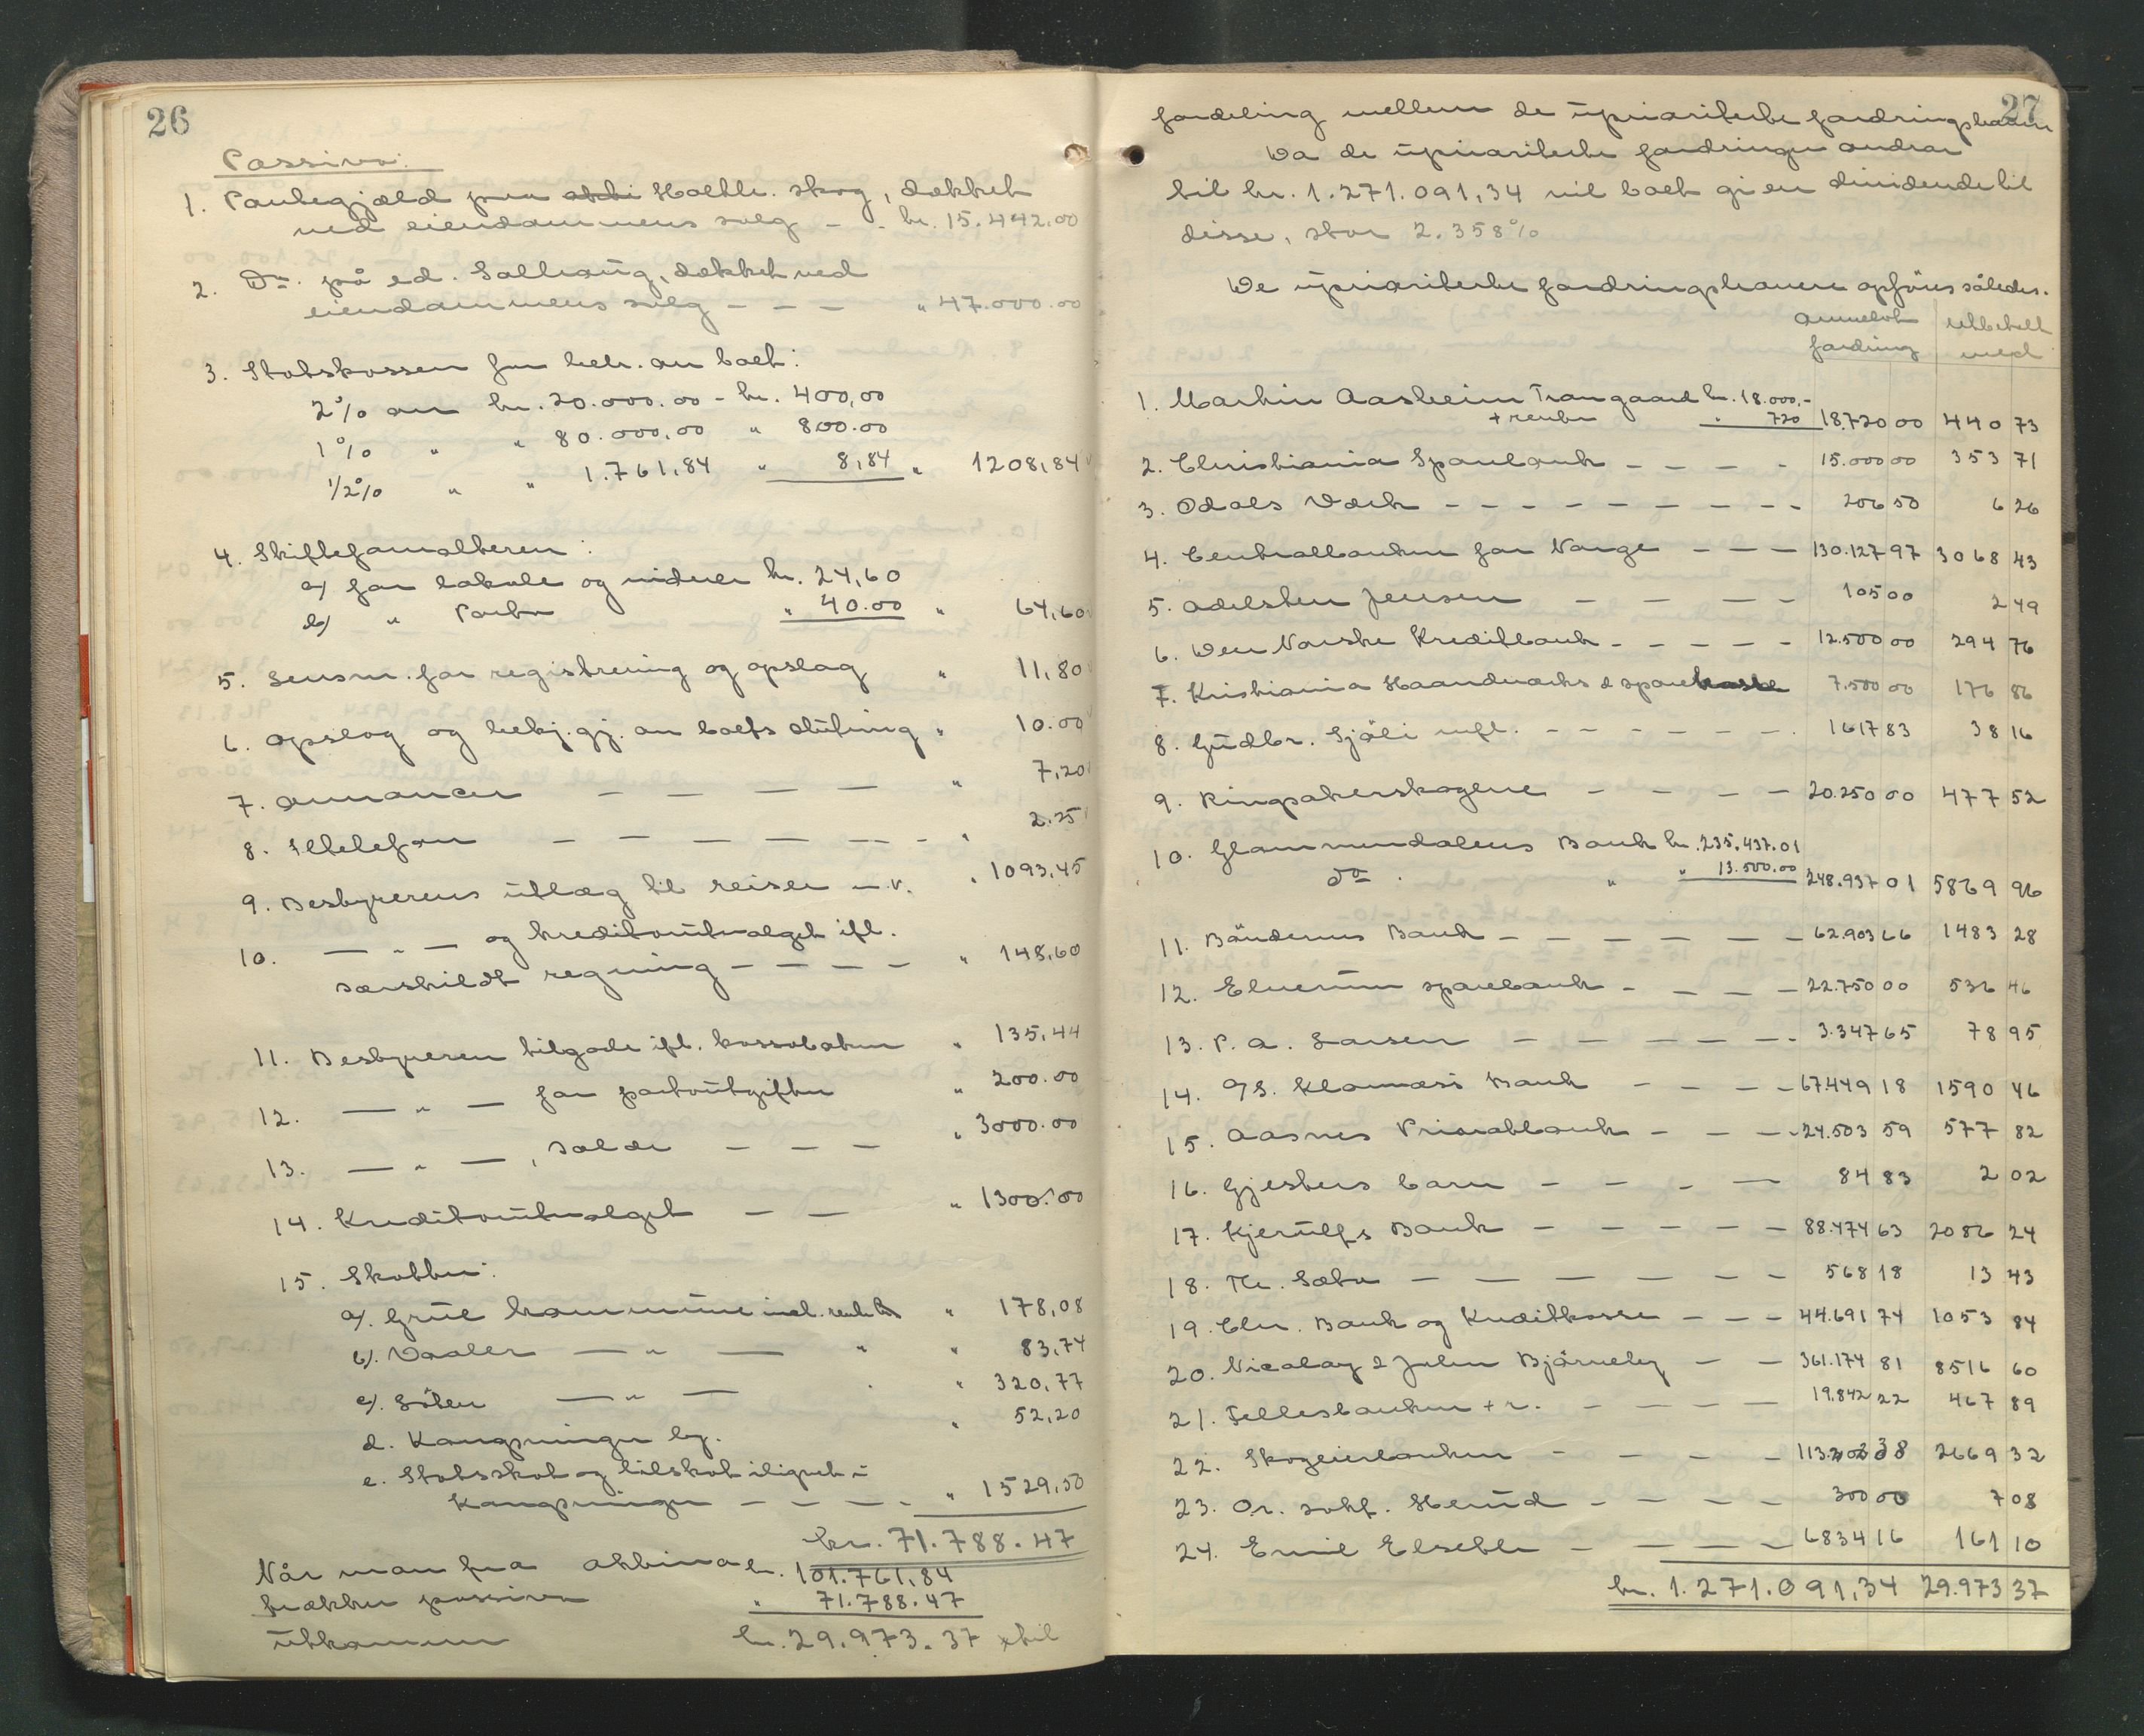 26
Passiva:
1. Pantegjæld pen Holtbr. skog, dækket
ved eiendommens salg - - kr. 15.442.00
2. Do. på ed. Solhaug, dækket ved
eiendommens salg - - - " 47.000.00
3. Statskassen for beh. av boet:
2% av kr. 20.000.00 - kr. 400,00
1% " " 80.000,00 " 800.00
1/2% " " 1.761,84 " 8,84 " 1208,84
4. Skifteforvalteren:
a/ for lokale og vidner kr. 24,60
b/ " Porto " 40.00 " 64,60
5. Lensm. for registrering og opslag " 11,80
6. Opslag og bekj.gj. av boets slutning " 10.00
7. Annoncer - - - - " 7,20
8. Iltelefon - - - - - - - " 2.25
9. Bestyrerens utlæg til reiser m.v. " 1093,45
10. — " — og kreditorutvalget ifl.
særskildt regning - - - - " 148,60
11. Bestyreren tilgode ifl. kassaboken " 135,44
12. — " — for portoutgifter " 200.00
13. — " —, salær - - - " 3000.00
14. Kreditorutvalget - - " 1300.00
15. Skatter:
a/. Grue kommune incl. renter " 178,08
b/. Vaaler — " — " " 83,74
c/. Löten — " — " " 320,77
d. Kongsvinger by. " 52,20
e. Statsskat og tilskat ilignet i
Kongsvinger - - - - " 1529,50
kr. 71.788.47
Når man fra aktiva kr. 101.761,84
trækker passiva " 71.788.47
utkommer kr. 29.973.37 til
27
fordeling mellem de uprioriterte fordringshavere
Da de upriorterte fordringer andrar
til kr. 1.271.091,34 vil boet gi en dividende til
disse, stor 2.358%
De upriorterte fordringshavere opföres således.
anmeldt utbetalt
fordring med
1. Martin Aasheim Trangaard kr. 18.000,-
+ renter " 720 18.720 00 440 73
2. Christiania Sparebank - - - - 15.000 00 353 71
3. Odals Værk - - - - - - - - - 206 50 6 26
4. Centralbanken for Norge - - - 130.127 97 3068 43
5. Adelsten Jensen - - - - 105 00 2 49
6. Den Norske Kreditbank - - - - - 12.500 00 294 76
7. Kristiania Haandværks & sparekasse 7.500 00 176 86
8. Gudbr. Sjöli - - - - - - - 1617 83 38 16
9. Ringsakerskogene - - - - 20.250 00 477 52
10. Glommendalens Bank kr. 235.437.01
do. " " 13.500.00 248.937 01 5869 96
11. Böndernes Bank - - - - - - 62.903 66 1483 28
12. Elverum sparebank - - - - 22.750 00 536 46
13. P. A. Larsen - - - - - - 3.347 65 78 95
14. A/S. Klannæsi Bank - - - - 67.449 18 1590 46
15. Aasnes Privatbank - - - - 24.503 59 577 82
16. Gjesters barn - - - - 84 83 2 02
17. Kjerulfs Bank - - - - - - 88.474 63 2086 24
18. Th. Sæter - - - - - - - 568 18 13 43
19. Chr. Bank og Kreditkasse - - - 44.691 74 1053 84
20. Nicolay & Julius Bjørneby - - 361.174 81 8516 60
21. Fellesbanken + r. - - - - 19.842 22 467 89
22. Skogeierbanken - - - - 113.202 38 2669 32
23. Or. sakf. Herud - - - - 300 00 7 08
24. Emil Elseth - - - - 6834 16 161 10
kr. 1.271.091,34 29.973 37